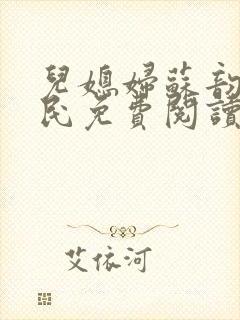 兒媳婦蘇韵
民免費閱讀
艾依河